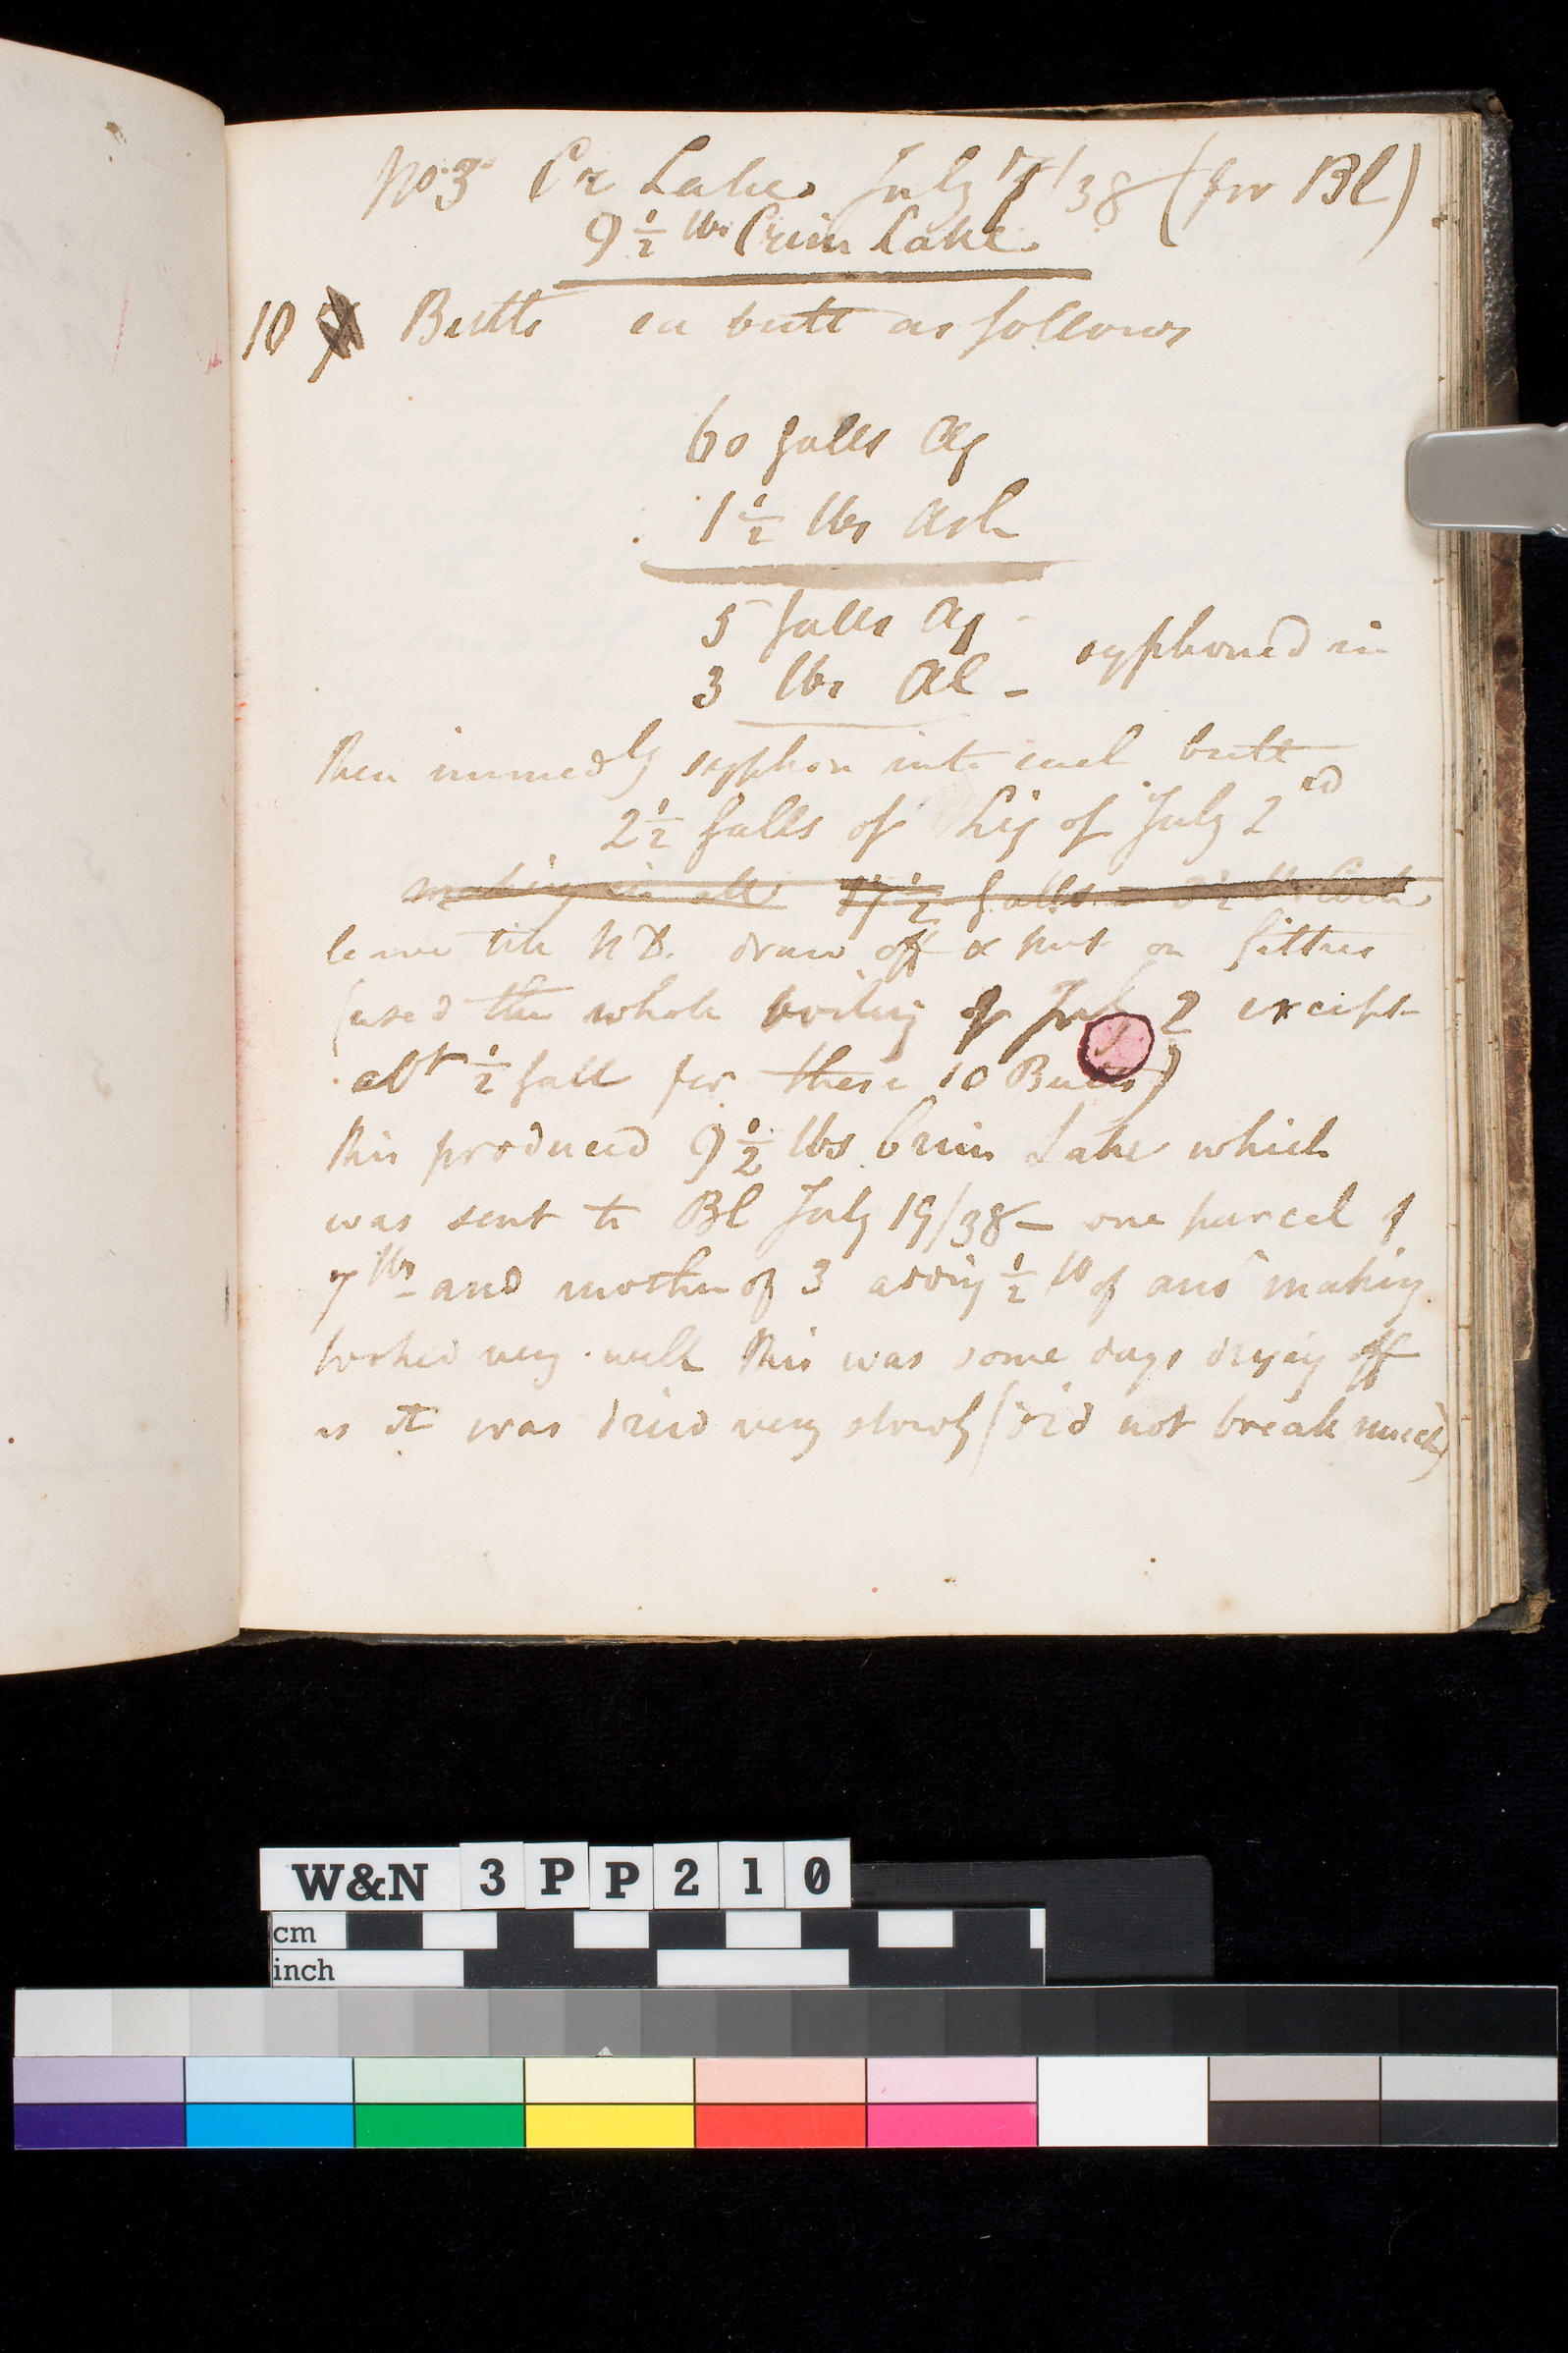 No. 3 Cr Lake. July 7/38 (for Bl)
9 1/2 lbs Crim Lake.
10 Butts ea butt as follows
60 galls Aq
1 1/2 lbs Ash
5 galls Aq
3 lbs Al – syphoned in
then immedly syphon into each butt
2 1/2 galls of Liq of July 2nd
making in all 17 1/2 galls = lbs Coch
leave till ND. draw off & put on filters
(used the whole boiling of July 2 except
abt 1/2 gall for these 10 Butts)
this produced 9 1/2 lbs Crim Lake which
was sent to Bl July 19/38 – one parcel of
7 lbs and another of 3 adding 1/2 lb of anr making
looked very well this was some days drying off
as it was dried very slowly (did not break much)
W&N 3PP210
cm
inch